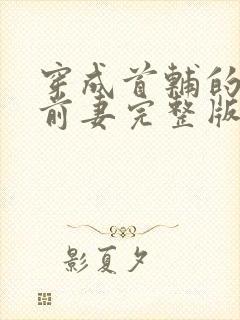 穿成首辅的
前妻完整版
影夏夕